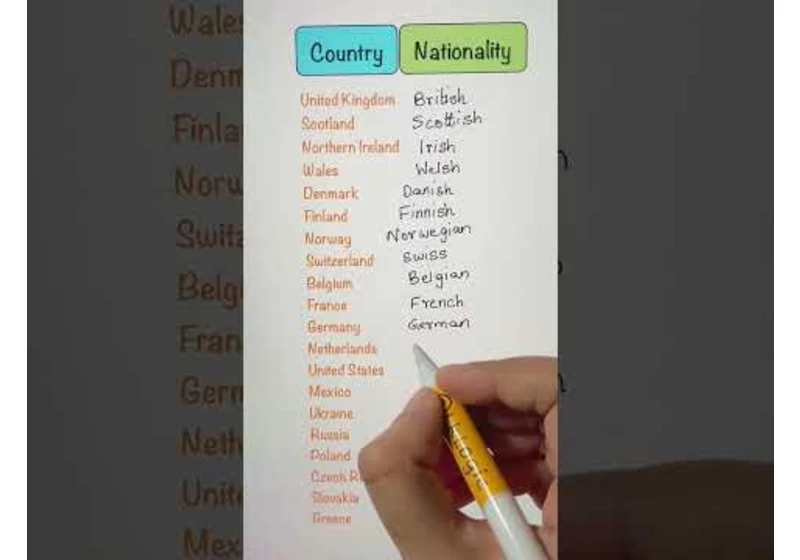 Country Nationality
United Kingdom British
Scotland Scottish
Northern Ireland Irish
Wales Welsh
Denmark Danish
Finland Finnish
Norway Norwegian
Switzerland Swiss
Belgium Belgian
France French
Germany German
Netherlands
United States
Mexico
Ukraine
Russia
Poland
Czech R
Slovakia
Greece